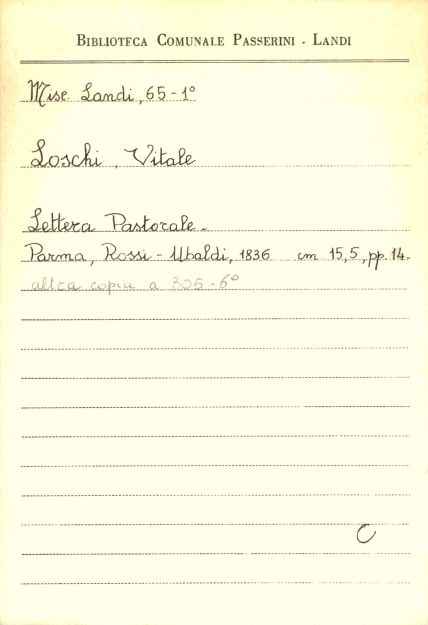 BIBLIOTECA COMUNALE PASSERINI - LANDI
Misc. Landi, 65-1°
Loschi, Vitale
Lettera Pastorale.
Parma, Rossi-Ubaldi, 1836 cm 15,5, pp. 14.
altra copia a 305-6°
C